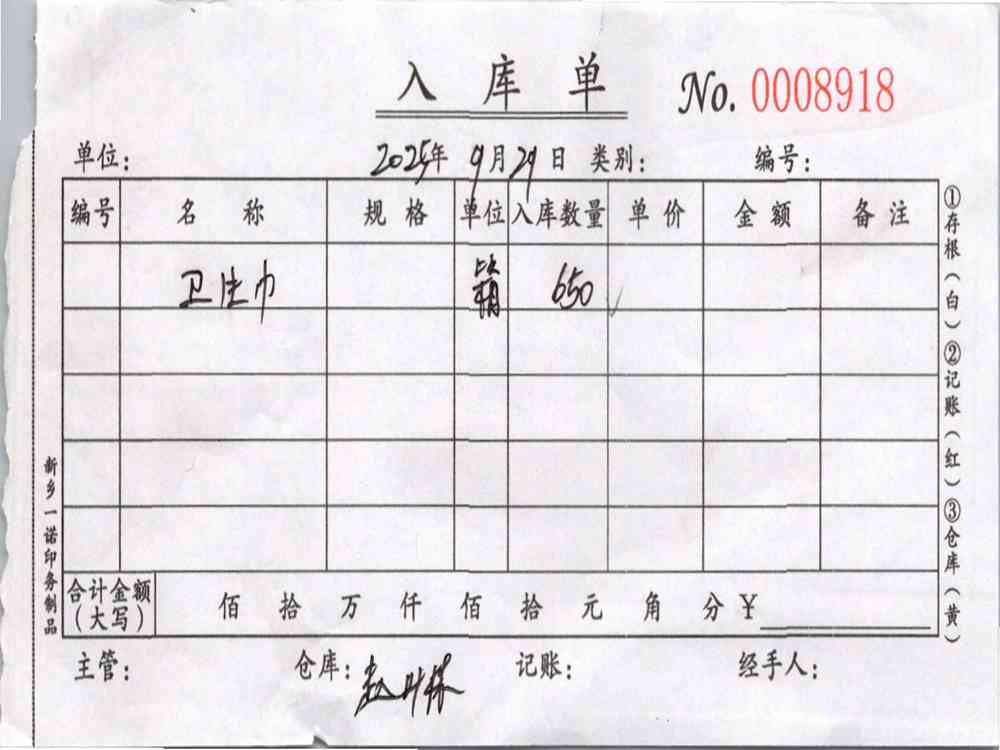 入库单 No. 0008918
单位： 2025年 9月29日 类别： 编号：
编号 名称 规格 单位 入库数量 单价 金额 备注
卫生巾 箱 650
合计金额（大写） 佰 拾 万 仟 佰 拾 元 角 分 ￥
主管： 仓库： 记账： 经手人：
①存根（白）②记账（红）③仓库（黄）
新乡一诺印务制品